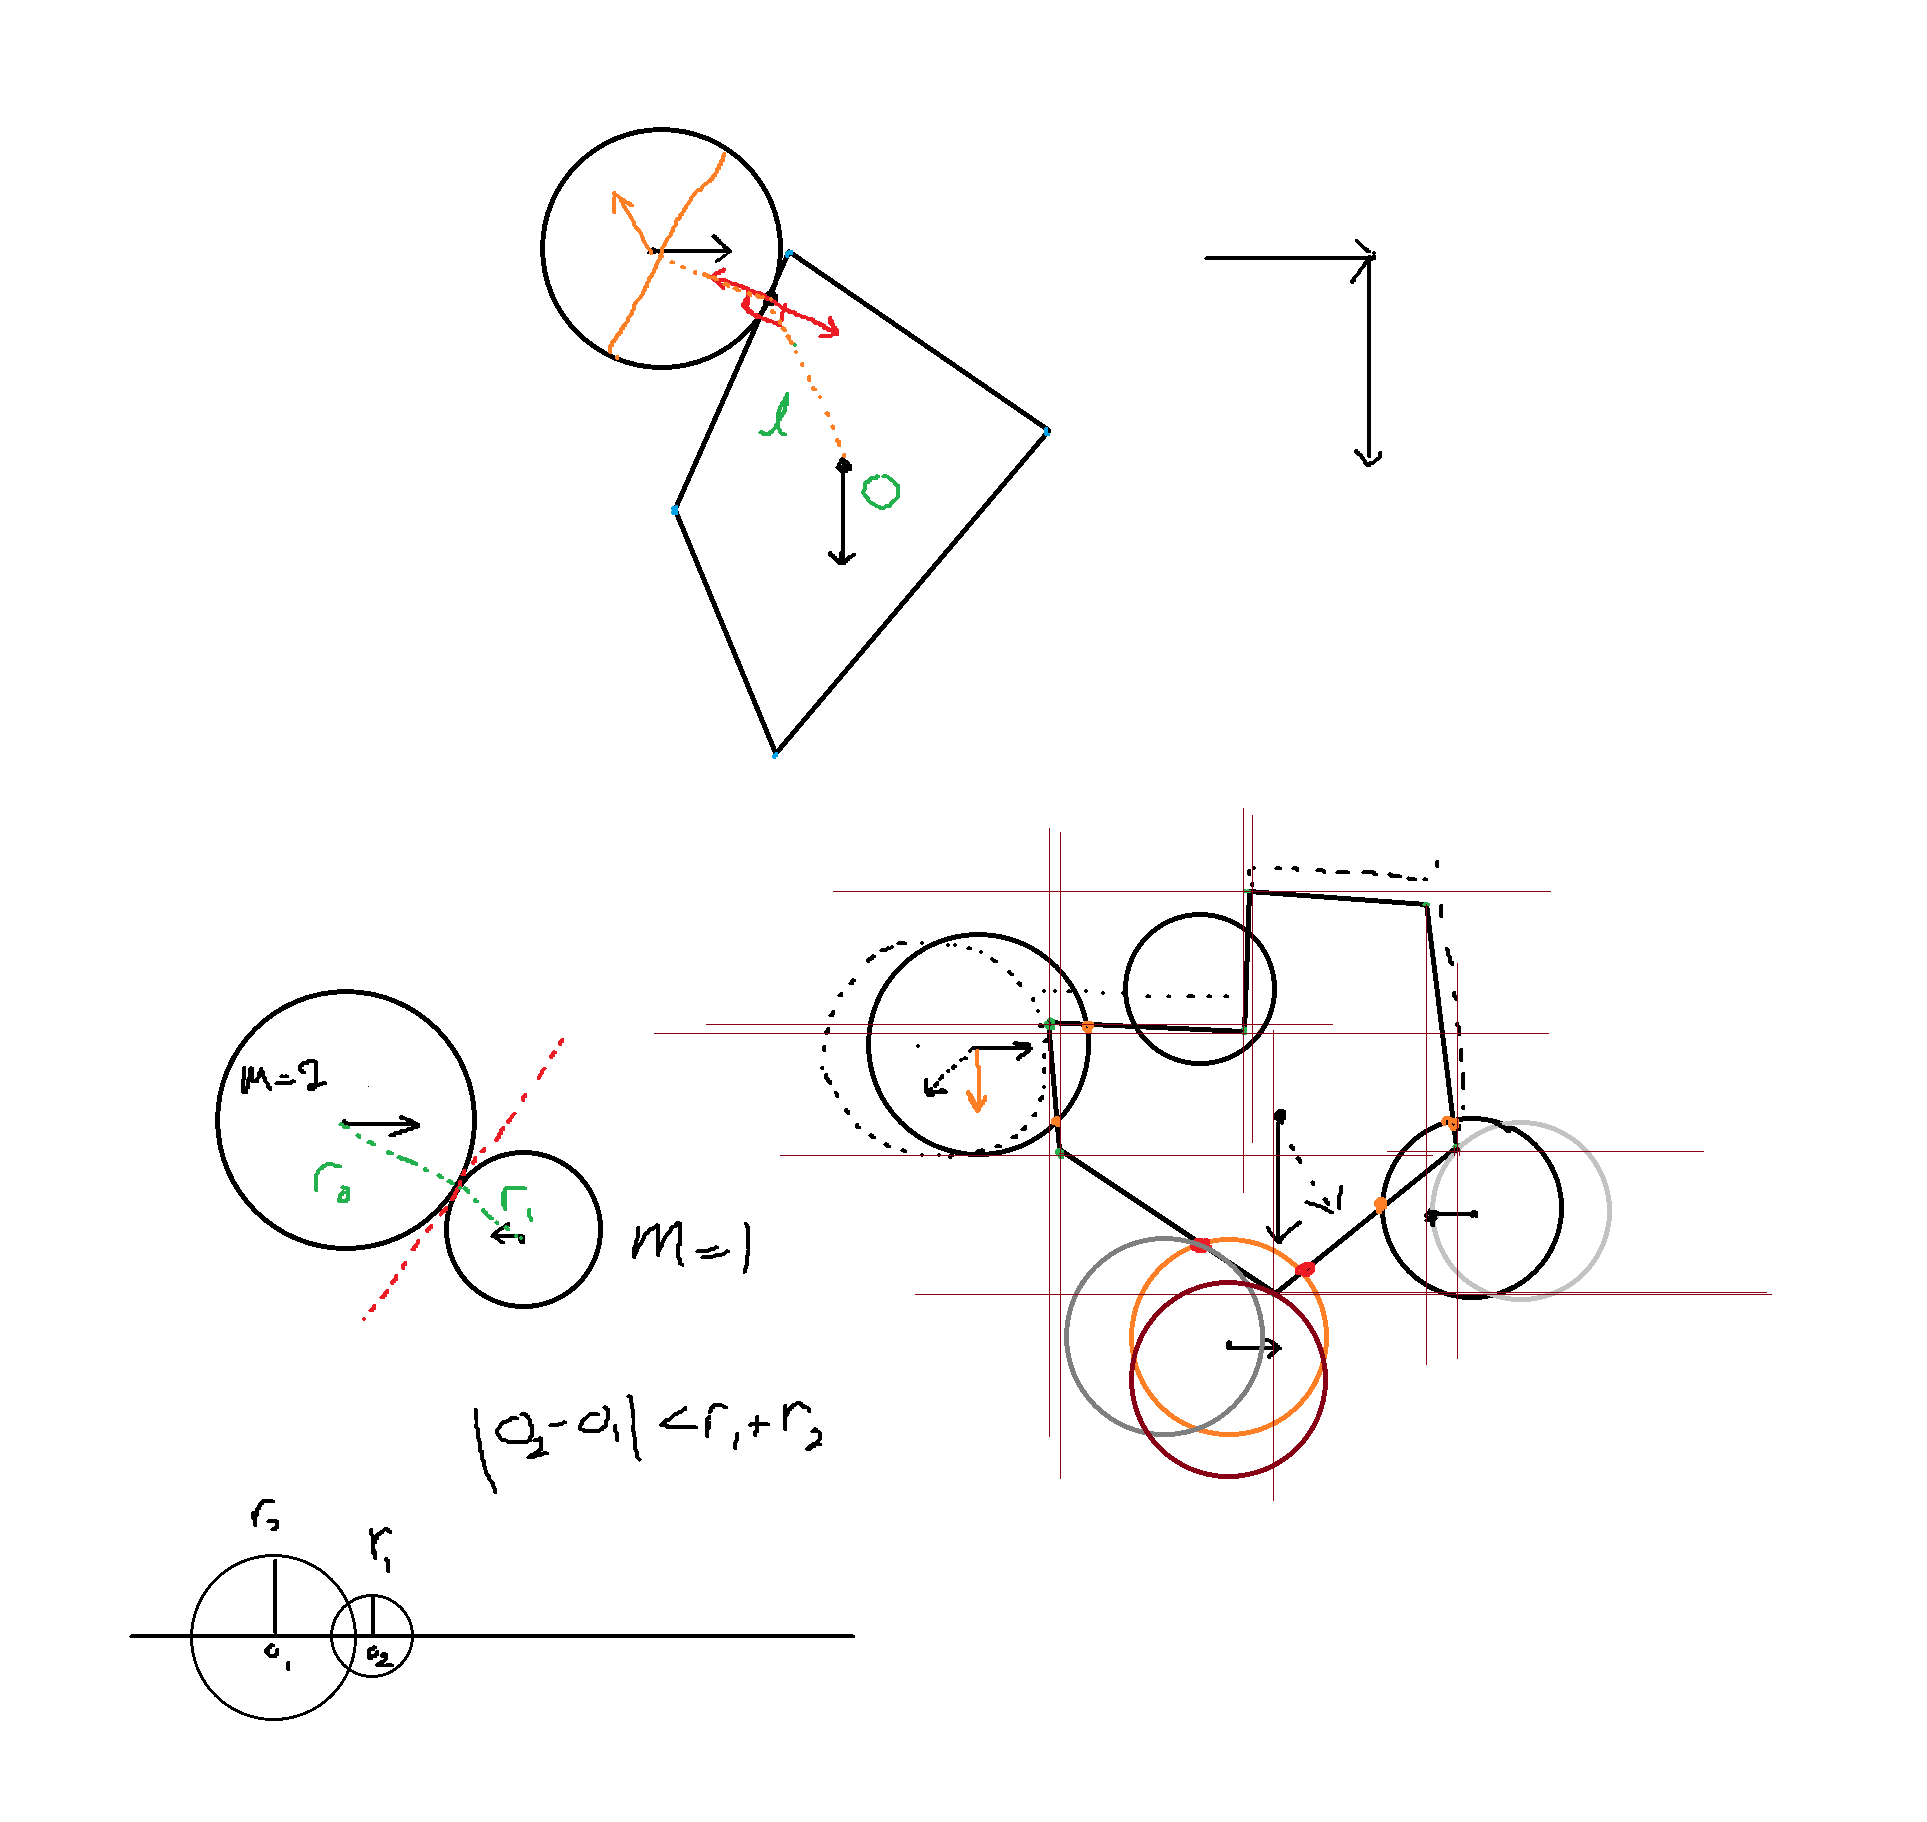 l
O
m=2
r₂
r₁
m=1
|O₂-O₁|<r₁+r₂
r₂
r₁
O₁
O₂